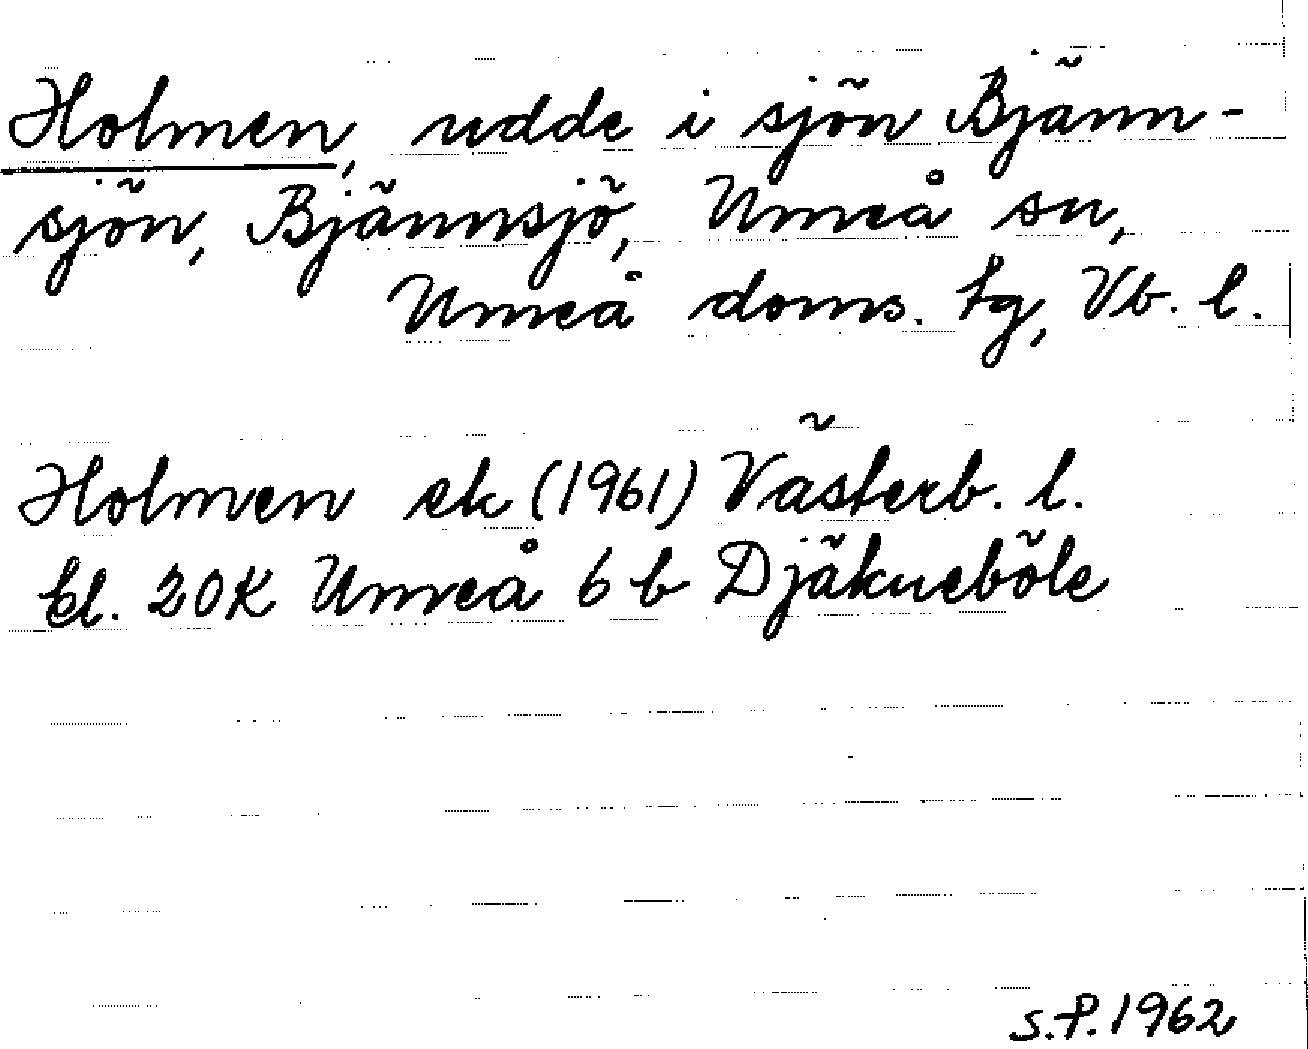 Holmen, udde i sjön Bjänn-
sjön, Bjännsjö, Umeå sn,
Umeå doms. tg, Vb. l.
Holmen ek (1961) Västerb. l.
bl. 20K Umeå 6 b Djäkneböle
S.P. 1962